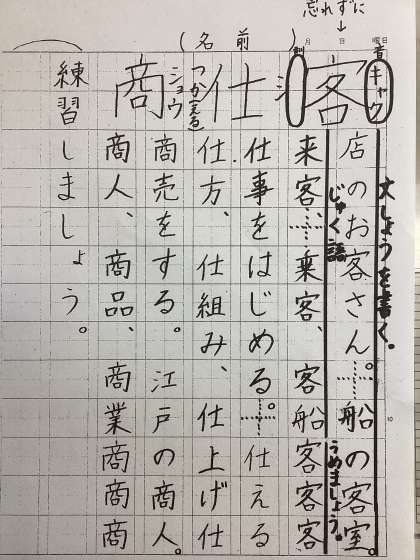 忘れずに
↓
月 日 曜日
(名前)
音
キャク
訓
客
文しょうを書く。
店のお客さん。船の客室。
じゅく語
うめましょう。
来客、乗客、客船客客客
シ
仕
つか(える)
仕事をはじめる。仕える
仕方、仕組み、仕上げ仕
ショウ
商
商売をする。江戸の商人。
商人、商品、商業商商商
練習しましょう。